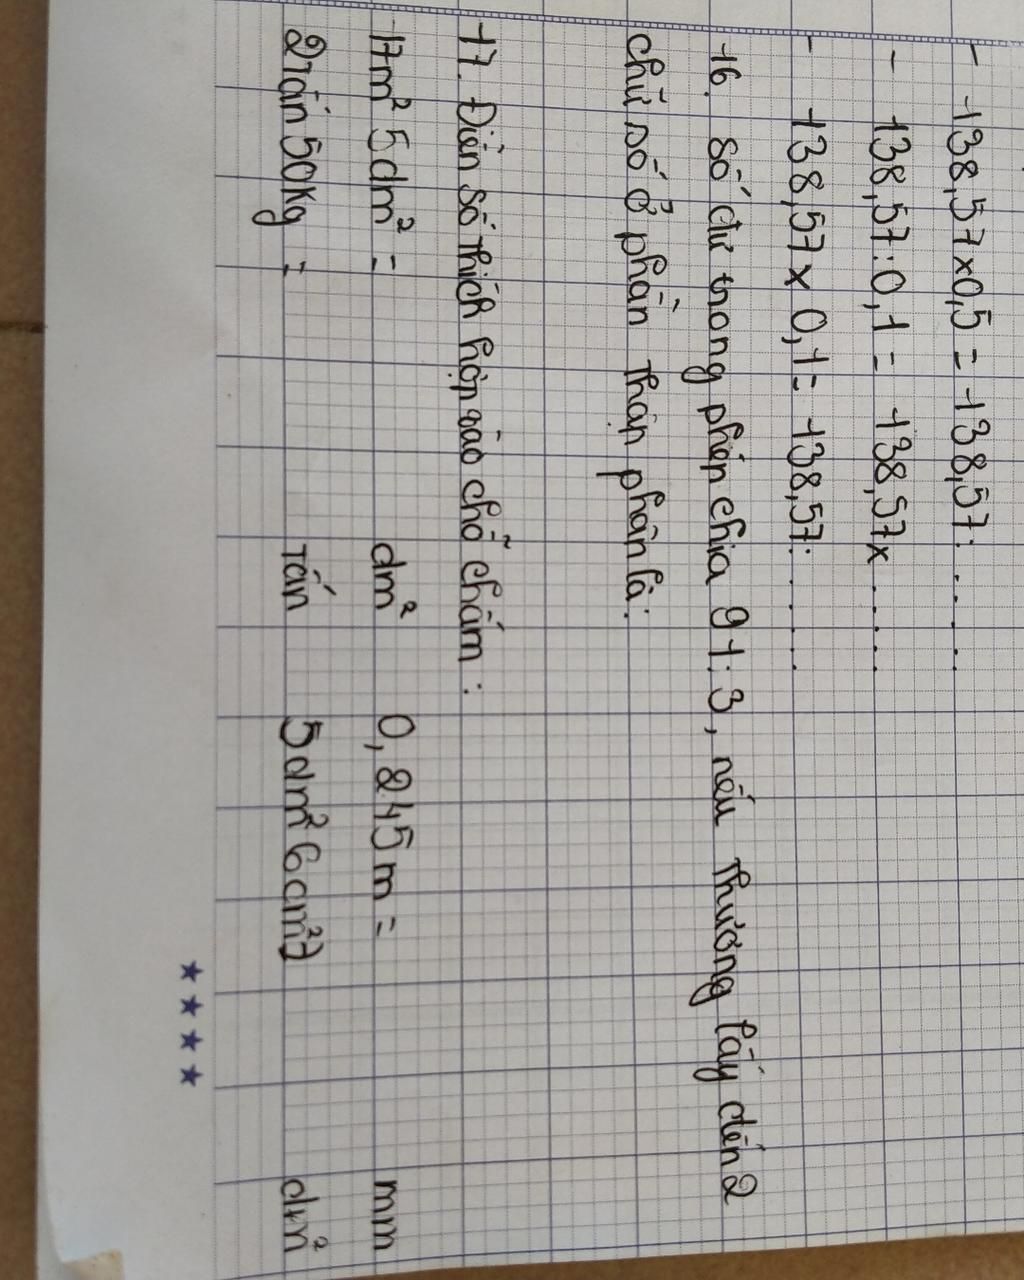 - 138,57 x 0,5 = 138,57: . . . .
- 138,57: 0,1 = 138,57 x . . . . .
- 138,57 x 0,1 = 138,57: . . . .
16. Số dư trong phép chia 91: 3, nếu thương lấy đến 2
chữ số ở phần thập phân là:
17. Điền số thích hợp vào chỗ chấm :
17m² 5dm² = dm² 0,245 m = mm
2 tấn 50kg = tấn 5dm² 6cm² 7 dm²